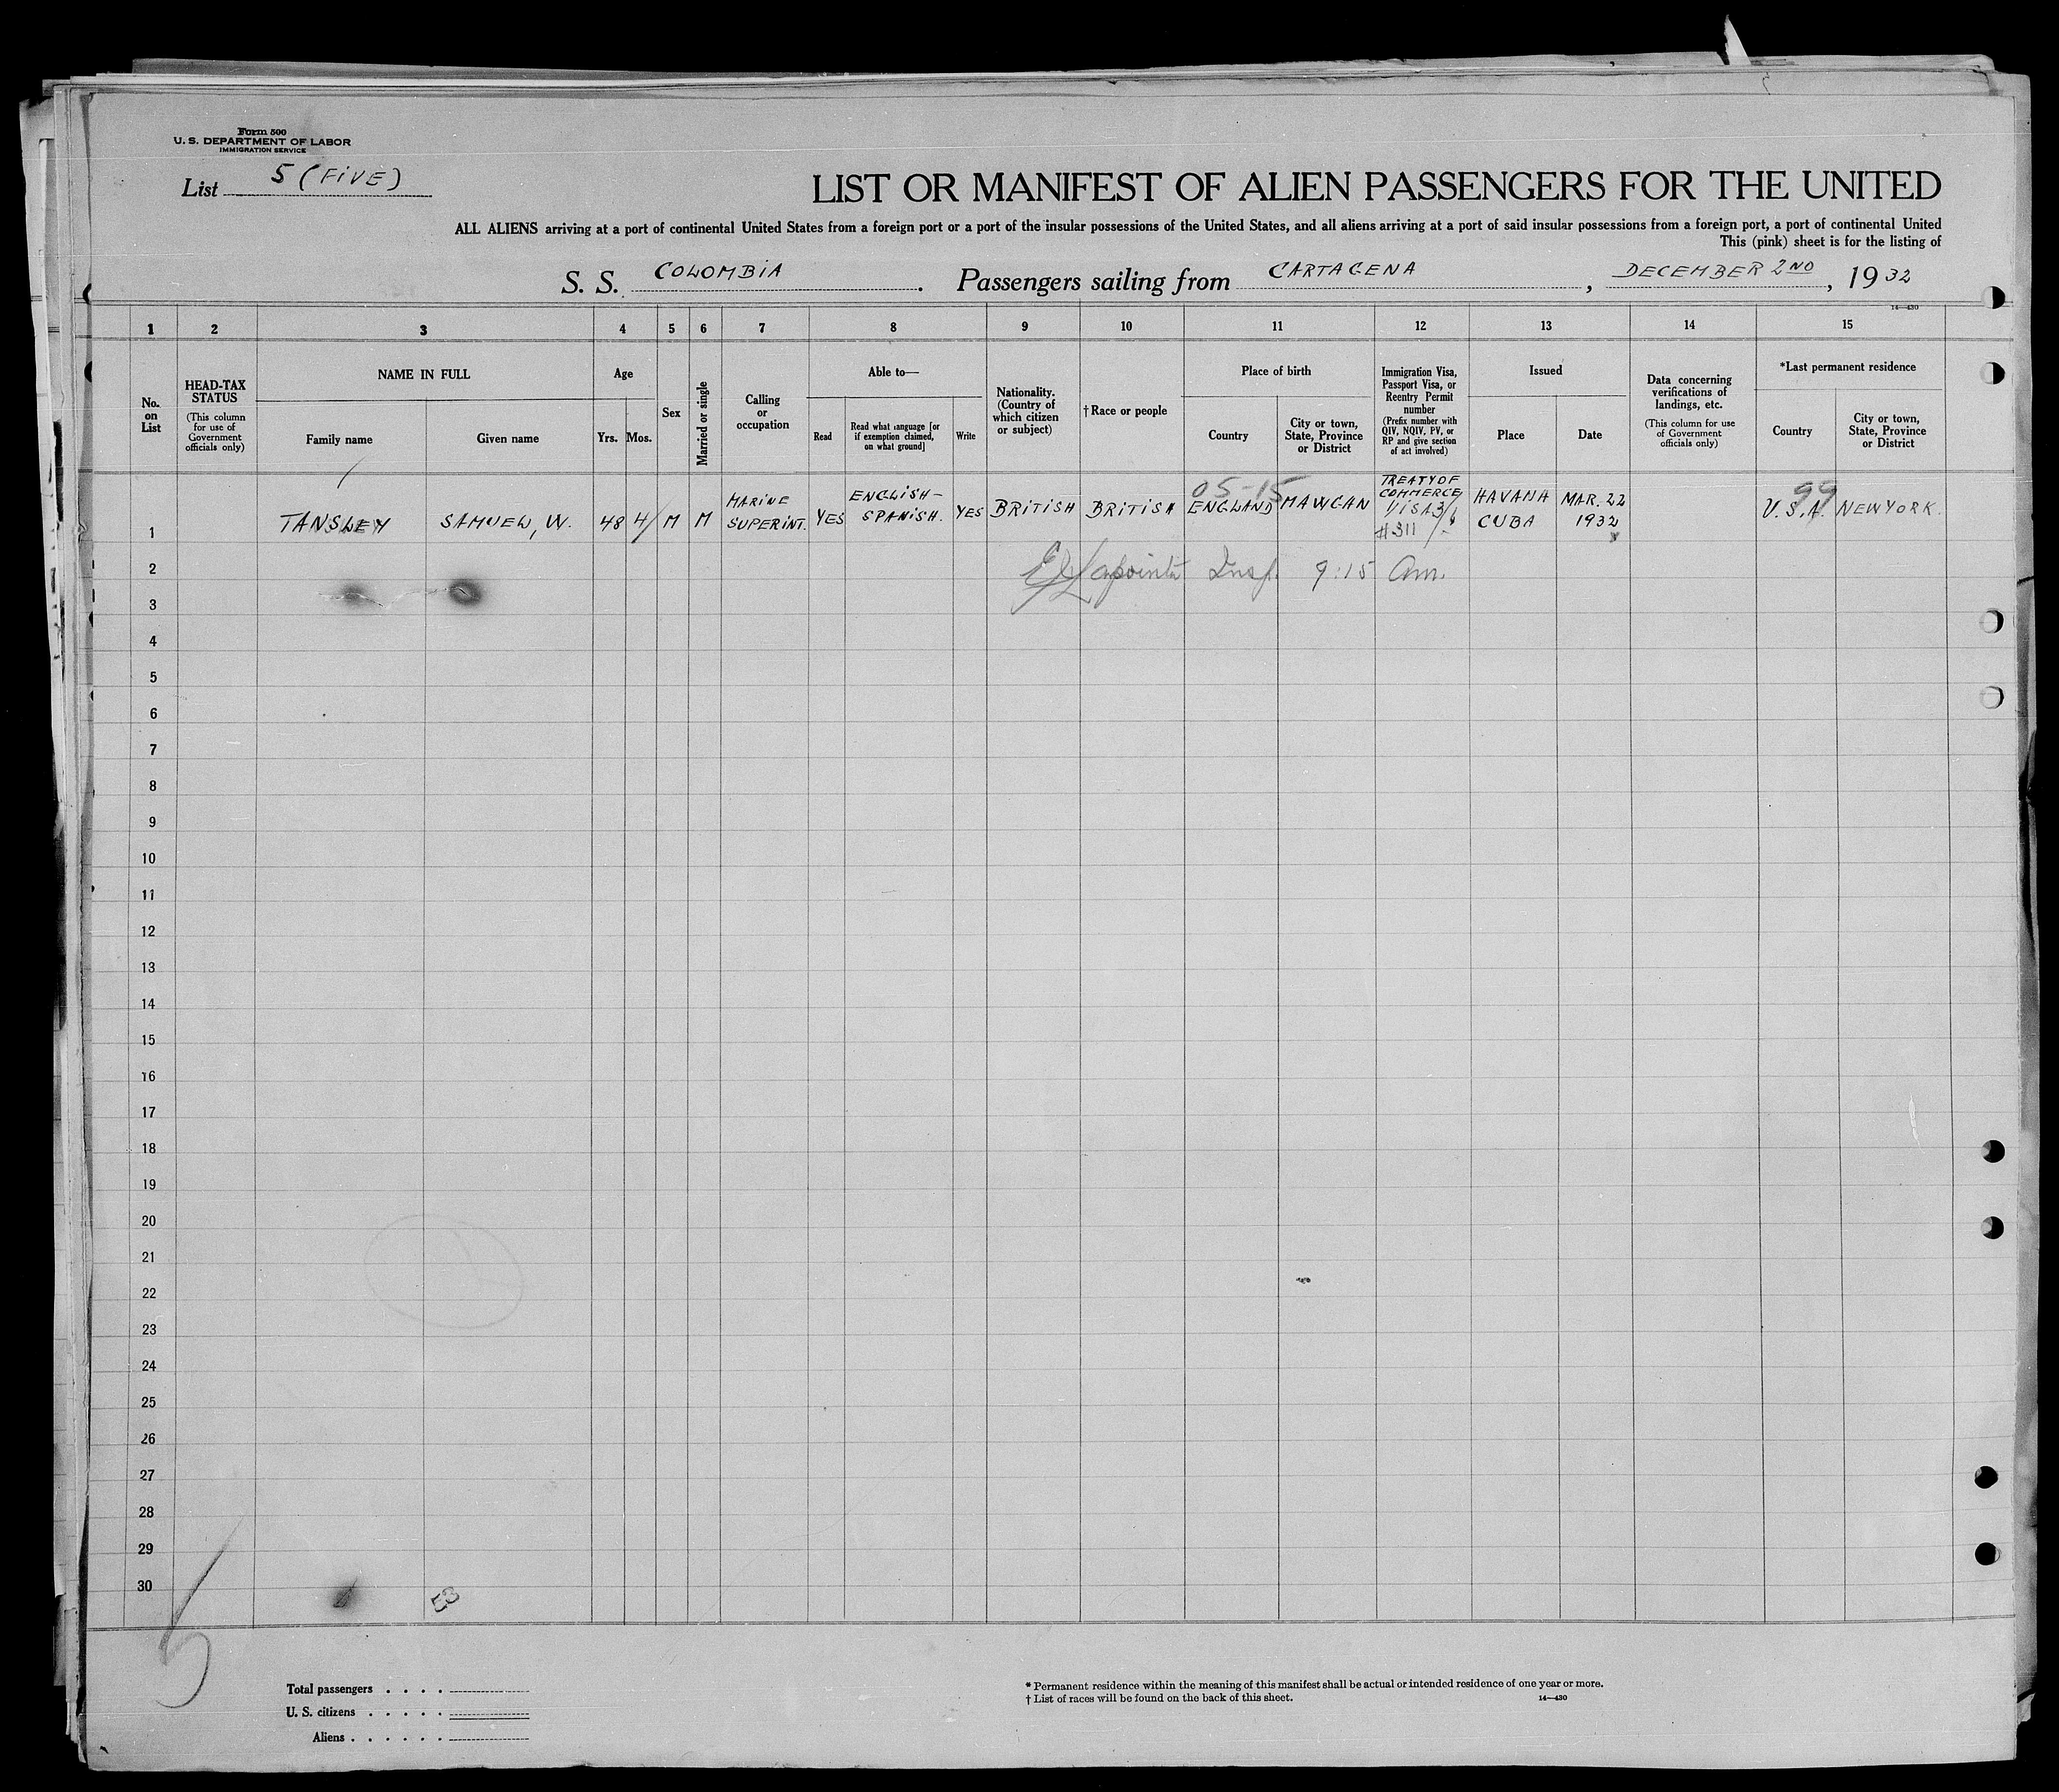 Form 500
U. S. DEPARTMENT OF LABOR
IMMIGRATION SERVICE
List 5 (FIVE)
LIST OR MANIFEST OF ALIEN PASSENGERS FOR THE UNITED
ALL ALIENS arriving at a port of continental United States from a foreign port or a port of the insular possessions of the United States, and all aliens arriving at a port of said insular possessions from a foreign port, a port of continental United
This (pink) sheet is for the listing of
S. S. COLOMBIA. Passengers sailing from CARTAGENA, DECEMBER 2ND, 1932
14—430
1 2 3 4 5 6 7 8 9 10 11 12 13 14 15
No. on List
HEAD-TAX STATUS
(This column for use of Government officials only)
NAME IN FULL
Family name
Given name
Age
Yrs. Mos.
Sex
Married or single
Calling or occupation
Able to—
Read
Read what language [or if exemption claimed, on what ground]
Write
Nationality. (Country of which citizen or subject)
†Race or people
Place of birth
Country
City or town, State, Province or District
Immigration Visa, Passport Visa, or Reentry Permit number
(Prefix number with QIV, NQIV, PV, or RP and give section of act involved)
Issued
Place
Date
Data concerning verifications of landings, etc.
(This column for use of Government officials only)
*Last permanent residence
Country
City or town, State, Province or District
1 TANSLEY SAMUEL, W. 48 4 M M MARINE SUPERINT. YES ENGLISH- SPANISH. YES BRITISH BRITISH 05-15 ENGLAND MAWGAN TREATY OF COMMERCE VISA #311 HAVANA CUBA MAR. 22 1932 99 U.S.A. NEW YORK.
2 Lapointe Insp. 9:15 am.
3
4
5
6
7
8
9
10
11
12
13
14
15
16
17
18
19
20
21
22
23
24
25
26
27
28
29
30
5
Total passengers . . . .
U. S. citizens . . . . .
Aliens . . . . . .
* Permanent residence within the meaning of this manifest shall be actual or intended residence of one year or more.
† List of races will be found on the back of this sheet.
14—430